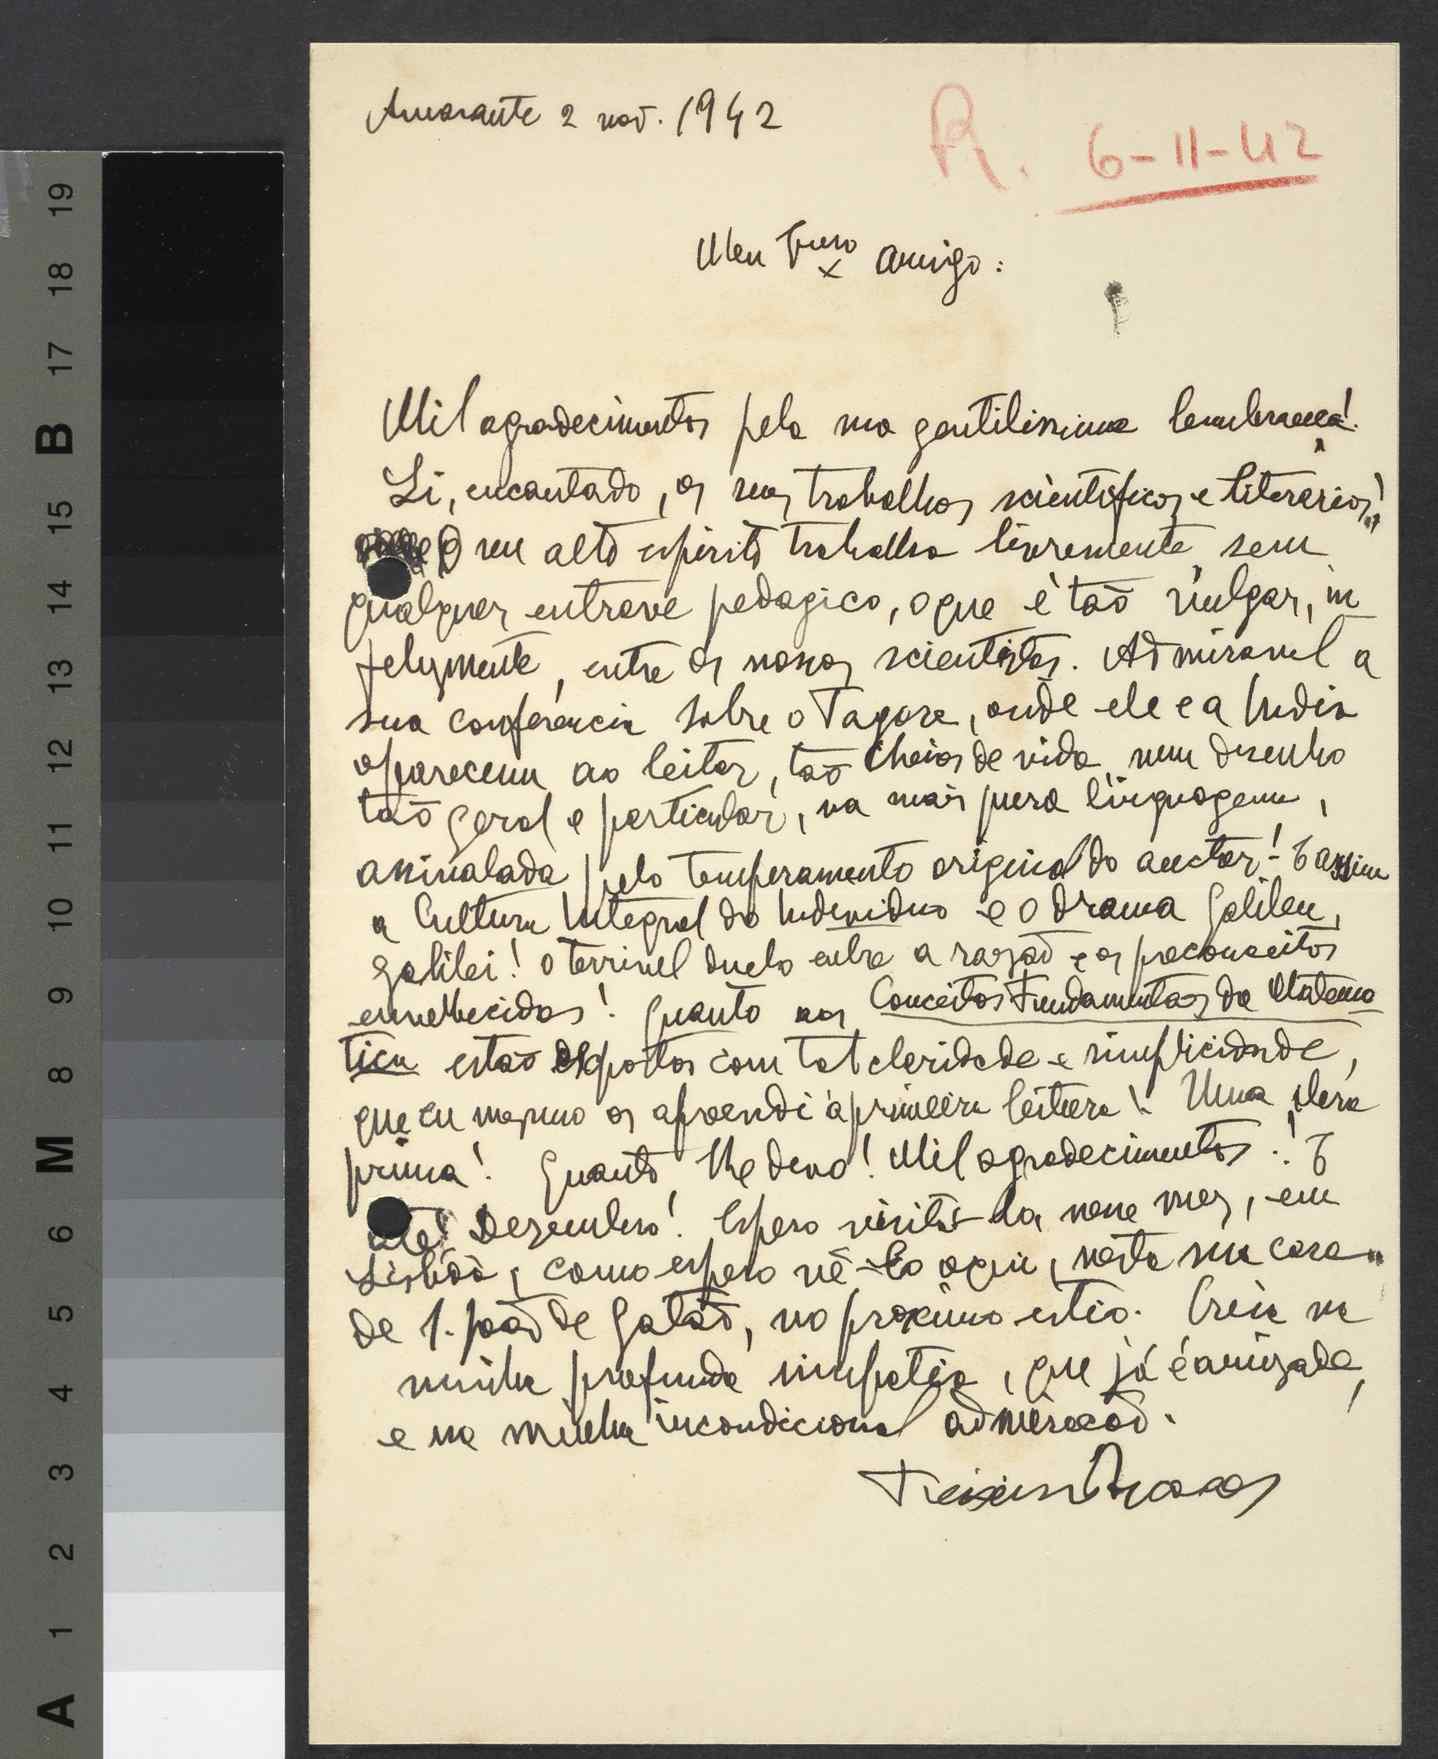 Amarante 2 nov. 1942
R. 6-11-42
Meu Exmo amigo:
Mil agradecimentos pela sua gentilissima lembrança!
Li, encantado, os seus trabalhos scientificos e literarios!
O seu alto espirito trabalha livremente, sem
qualquer entrave pedagico, o que é tão vulgar, in
felizmente, entre os nossos scientistas. Admiravel a
sua conferencia sobre o Tagore, onde ele e a India
aparecem ao leitor, tão cheios de vida, num desenho
tão geral e particular, na mais pura linguagem,
assinalada pelo temperamento original do auctor! E assim
a Cultura Integral do Individuo e o drama Galileu,
Galilei! O terrivel duelo entre a razão e os preconceitos
envelhecidos! Quanto aos Conceitos Fundamentaes da Matema
tica estão expostos com tal claridade e simplicidade,
que eu mesmo os aprendi á primeira leitura! Uma obra
prima! Quanto lhe devo! Mil agradecimentos! E
até Dezembro! Espero visita-lo, nesse mez, em
Lisbôa, como espero vê-lo aqui, nesta sua casa
de S. João de Gatão, no proximo estio. Creia na
minha profunda simpatia, que já é amizade,
e na minha incondicional admiração.
Teixeira Pascoaes
A 1 2 3 4 5 6 M 8 9 10 11 12 13 14 15 B 17 18 19